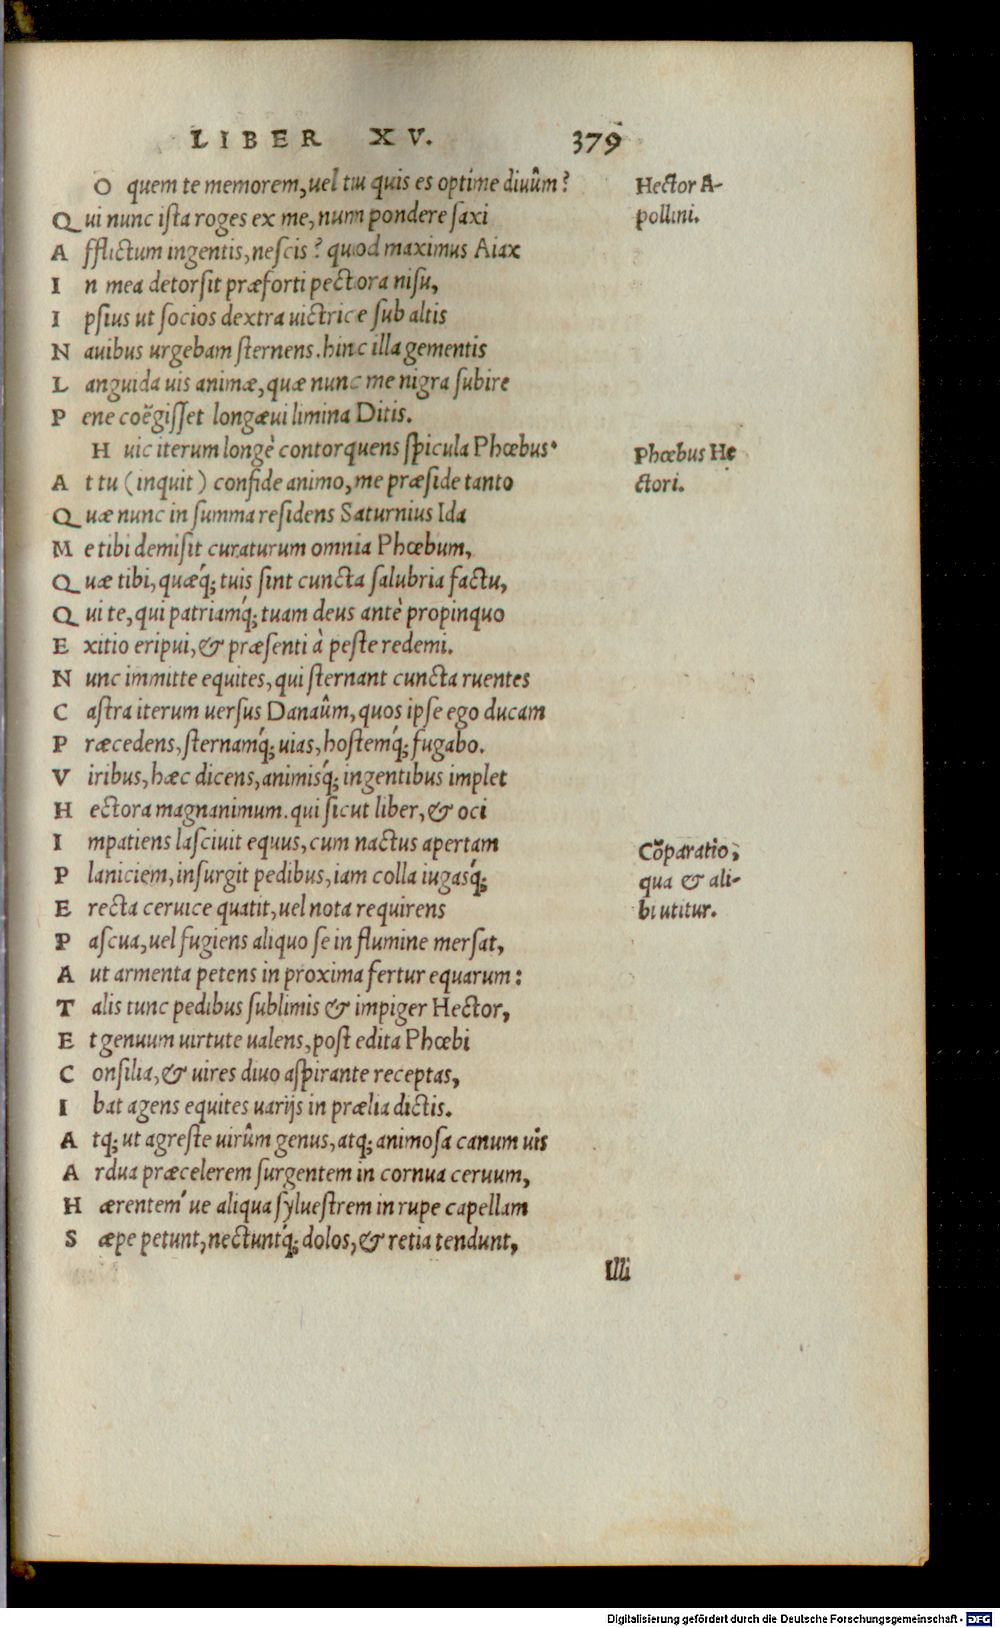 LIBER XV. 379
O quem te memorem, uel tu quis es optime diuûm?
Hector A-
pollini.
Qui nunc ista roges ex me, num pondere saxi
Afflictum ingentis, nescis? quod maximus Aiax
In mea detorsit præforti pectora nisu,
Ipsius ut socios dextra uictrice sub altis
Nauibus urgebam sternens. hinc illa gementis
Languida uis animæ, quæ nunc me nigra subire
Pene coëgisset longæui limina Ditis.
Huic iterum longè contorquens spicula Phœbus.
Phœbus He
ctori.
At tu (inquit) confide animo, me præside tanto
Quæ nunc in summa residens Saturnius Ida
Me tibi demisit curaturum omnia Phœbum,
Quæ tibi, quæq́; tuis sint cuncta salubria factu,
Qui te, qui patriamq́; tuam deus antè propinquo
Exitio eripui, & præsenti à peste redemi.
Nunc immitte equites, qui sternant cuncta ruentes
Castra iterum uersus Danaûm, quos ipse ego ducam
Præcedens, sternamq́; uias, hostemq́; fugabo.
Viribus, hæc dicens, animisq́; ingentibus implet
Hectora magnanimum. qui sicut liber, & oci
Impatiens lasciuit equus, cum nactus apertam
Cõparatio,
qua & ali-
bi utitur.
Planiciem, insurgit pedibus, iam colla iugasq́;
Erecta ceruice quatit, uel nota requirens
Pascua, uel fugiens aliquo se in flumine mersat,
Aut armenta petens in proxima fertur equarum:
Talis tunc pedibus sublimis & impiger Hector,
Et genuum uirtute ualens, post edita Phœbi
Consilia, & uires diuo aspirante receptas,
Ibat agens equites uarijs in prælia dictis.
Atq; ut agreste uirûm genus, atq; animosa canum uis
Ardua præcelerem surgentem in cornua ceruum,
Hærentem´ue aliqua syluestrem in rupe capellam
Sæpe petunt, nectuntq́; dolos, & retia tendunt,
Illi
Digitalisierung gefördert durch die Deutsche Forschungsgemeinschaft - DFG